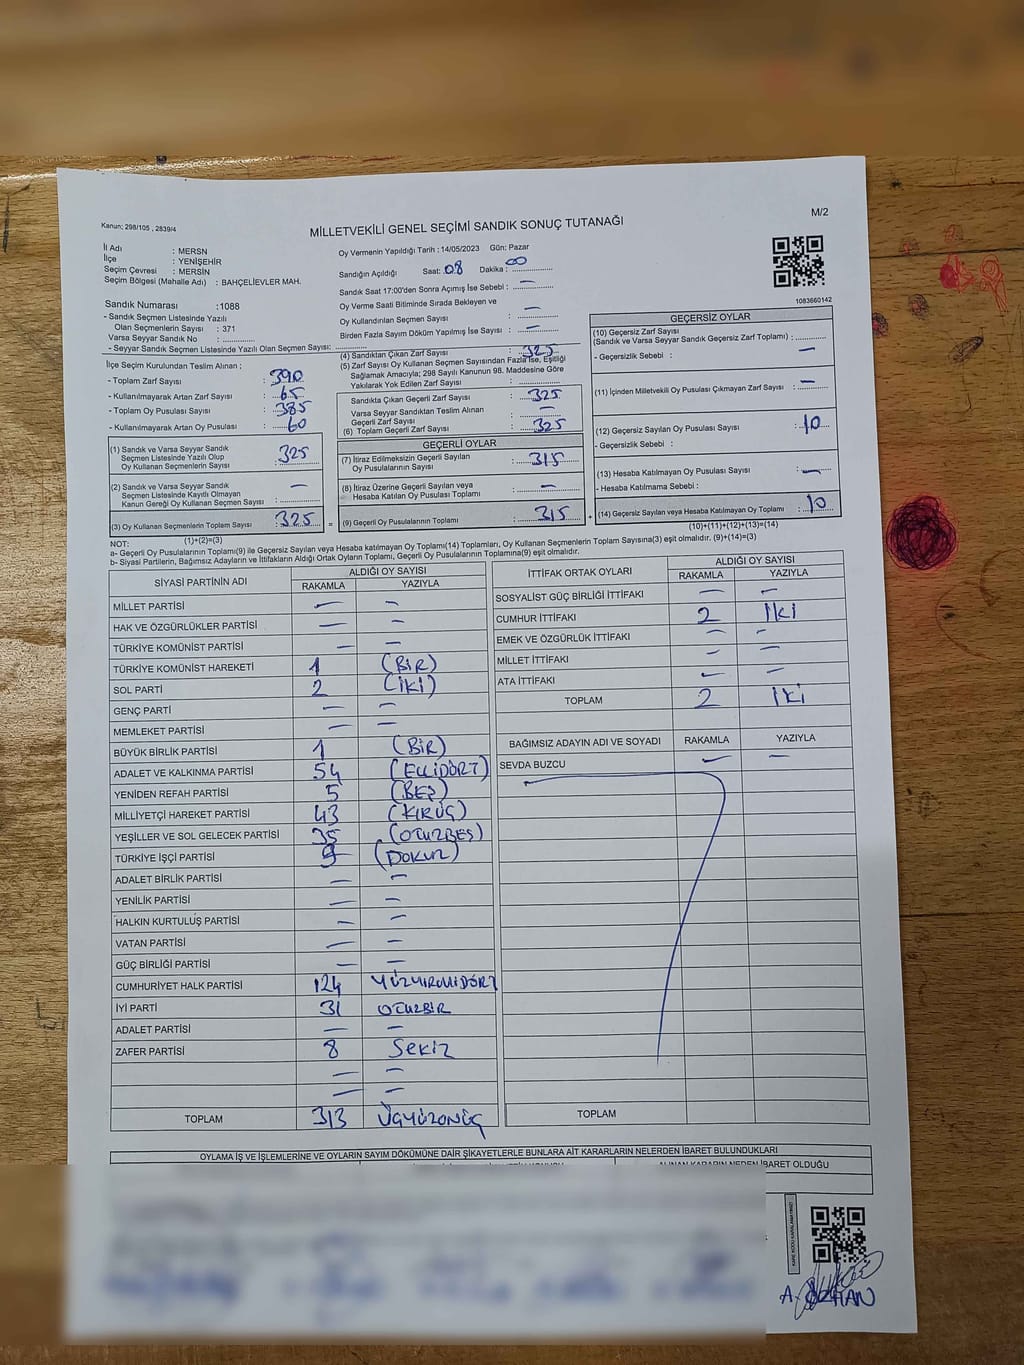 Kanun; 298/105 , 2839/4
M/2
MİLLETVEKİLİ GENEL SEÇİMİ SANDIK SONUÇ TUTANAĞI
İl Adı : MERSN
İlçe : YENİŞEHİR
Seçim Çevresi : MERSİN
Seçim Bölgesi (Mahalle Adı) : BAHÇELİEVLER MAH.
Sandık Numarası :1088
- Sandık Seçmen Listesinde Yazılı
Olan Seçmenlerin Sayısı : 371
Varsa Seyyar Sandık No :
- Seyyar Sandık Seçmen Listesinde Yazılı Olan Seçmen Sayısı:
Oy Vermenin Yapıldığı Tarih : 14/05/2023 Gün: Pazar
Sandığın Açıldığı Saat: 08 Dakika : 00
Sandık Saat 17:00'den Sonra Açımış İse Sebebi : —
Oy Verme Saati Bitiminde Sırada Bekleyen ve
Oy Kullandırılan Seçmen Sayısı : —
Birden Fazla Sayım Döküm Yapılmış İse Sayısı : —
1083660142
İlçe Seçim Kurulundan Teslim Alınan ;
- Toplam Zarf Sayısı : 390
- Kullanılmayarak Artan Zarf Sayısı : 65
- Toplam Oy Pusulası Sayısı : 385
- Kullanılmayarak Artan Oy Pusulası : 60
(1) Sandık ve Varsa Seyyar Sandık
Seçmen Listesinde Yazılı Olup
Oy Kullanan Seçmenlerin Sayısı : 325
(2) Sandık ve Varsa Seyyar Sandık
Seçmen Listesinde Kayıtlı Olmayan
Kanun Gereği Oy Kullanan Seçmen Sayısı : —
(3) Oy Kullanan Seçmenlerin Toplam Sayısı : 325
(1)+(2)=(3)
(4) Sandıktan Çıkan Zarf Sayısı : 325
(5) Zarf Sayısı Oy Kullanan Seçmen Sayısından Fazla İse, Eşitliği
Sağlamak Amacıyla; 298 Sayılı Kanunun 98. Maddesine Göre
Yakılarak Yok Edilen Zarf Sayısı :
Sandıkta Çıkan Geçerli Zarf Sayısı : 325
Varsa Seyyar Sandıktan Teslim Alınan
Geçerli Zarf Sayısı : —
(6) Toplam Geçerli Zarf Sayısı : 325
GEÇERLİ OYLAR
(7) İtiraz Edilmeksizin Geçerli Sayılan
Oy Pusulalarının Sayısı : 315
(8) İtiraz Üzerine Geçerli Sayılan veya
Hesaba Katılan Oy Pusulası Toplamı : —
= (9) Geçerli Oy Pusulalarının Toplamı : 315 +
GEÇERSİZ OYLAR
(10) Geçersiz Zarf Sayısı
(Sandık ve Varsa Seyyar Sandık Geçersiz Zarf Toplamı) :
- Geçersizlik Sebebi : —
(11) İçinden Milletvekili Oy Pusulası Çıkmayan Zarf Sayısı : —
(12) Geçersiz Sayılan Oy Pusulası Sayısı : 10
- Geçersizlik Sebebi :
(13) Hesaba Katılmayan Oy Pusulası Sayısı : —
- Hesaba Katılmama Sebebi :
(14) Geçersiz Sayılan veya Hesaba Katılmayan Oy Toplamı : 10
(10)+(11)+(12)+(13)=(14)
NOT:
a- Geçerli Oy Pusulalarının Toplamı(9) ile Geçersiz Sayılan veya Hesaba katılmayan Oy Toplamı(14) Toplamları, Oy Kullanan Seçmenlerin Toplam Sayısına(3) eşit olmalıdır. (9)+(14)=(3)
b- Siyasi Partilerin, Bağımsız Adayların ve İttifakların Aldığı Ortak Oyların Toplamı, Geçerli Oy Pusulalarının Toplamına(9) eşit olmalıdır.
SİYASİ PARTİNİN ADI ALDIĞI OY SAYISI
RAKAMLA YAZIYLA
MİLLET PARTİSİ — —
HAK VE ÖZGÜRLÜKLER PARTİSİ — —
TÜRKİYE KOMÜNİST PARTİSİ — —
TÜRKİYE KOMÜNİST HAREKETİ 1 (BİR)
SOL PARTİ 2 (İKİ)
GENÇ PARTİ — —
MEMLEKET PARTİSİ — —
BÜYÜK BİRLİK PARTİSİ 1 (BİR)
ADALET VE KALKINMA PARTİSİ 54 (ELLİDÖRT)
YENİDEN REFAH PARTİSİ 5 (BEŞ)
MİLLİYETÇİ HAREKET PARTİSİ 43 (KIRÜÇ)
YEŞİLLER VE SOL GELECEK PARTİSİ 35 (OTUZBEŞ)
TÜRKİYE İŞÇİ PARTİSİ 9 (DOKUZ)
ADALET BİRLİK PARTİSİ — —
YENİLİK PARTİSİ — —
HALKIN KURTULUŞ PARTİSİ — —
VATAN PARTİSİ — —
GÜÇ BİRLİĞİ PARTİSİ — —
CUMHURİYET HALK PARTİSİ 124 YÜZYİRMİDÖRT
İYİ PARTİ 31 OTUZBİR
ADALET PARTİSİ — —
ZAFER PARTİSİ 8 SEKİZ
— —
— —
TOPLAM 313 ÜÇYÜZONÜÇ
İTTİFAK ORTAK OYLARI ALDIĞI OY SAYISI
RAKAMLA YAZIYLA
SOSYALİST GÜÇ BİRLİĞİ İTTİFAKI — —
CUMHUR İTTİFAKI 2 İKİ
EMEK VE ÖZGÜRLÜK İTTİFAKI — —
MİLLET İTTİFAKI — —
ATA İTTİFAKI — —
TOPLAM 2 İKİ
BAĞIMSIZ ADAYIN ADI VE SOYADI RAKAMLA YAZIYLA
SEVDA BUZCU — —
TOPLAM
OYLAMA İŞ VE İŞLEMLERİNE VE OYLARIN SAYIM DÖKÜMÜNE DAİR ŞİKAYETLERLE BUNLARA AİT KARARLARIN NELERDEN İBARET BULUNDUKLARI
ALINAN KARARIN NEDEN İBARET OLDUĞU